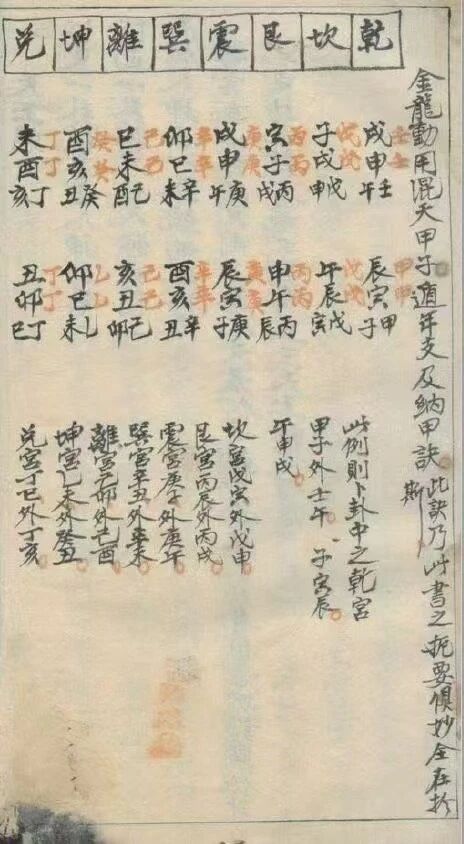 金龍動用混天甲子遁年支及納甲訣 此訣乃此書之扼要慎妙全在於斯
乾 坎 艮 震 巽 離 坤 兌
壬壬壬
戌申午
戊戊戊
子戌申
丙丙丙
寅子戌
庚庚庚
戌申午
辛辛辛
卯巳未
己己己
巳未酉
癸癸癸
酉亥丑
丁丁丁
未酉亥
甲甲甲
辰寅子
戊戊戊
午辰寅
丙丙丙
申午辰
庚庚庚
辰寅子
辛辛辛
酉亥丑
己己己
亥丑卯
乙乙乙
卯巳未
丁丁丁
丑卯巳
此例則卜卦中之乾宮
甲子外壬午。子寅辰。
午申戌
坎宮戊寅外戊申。
艮宮丙辰外丙戌。
震宮庚子外庚午。
巽宮辛丑外辛未。
離宮己卯外己酉。
坤宮乙未外癸丑。
兌宮丁巳外丁亥。